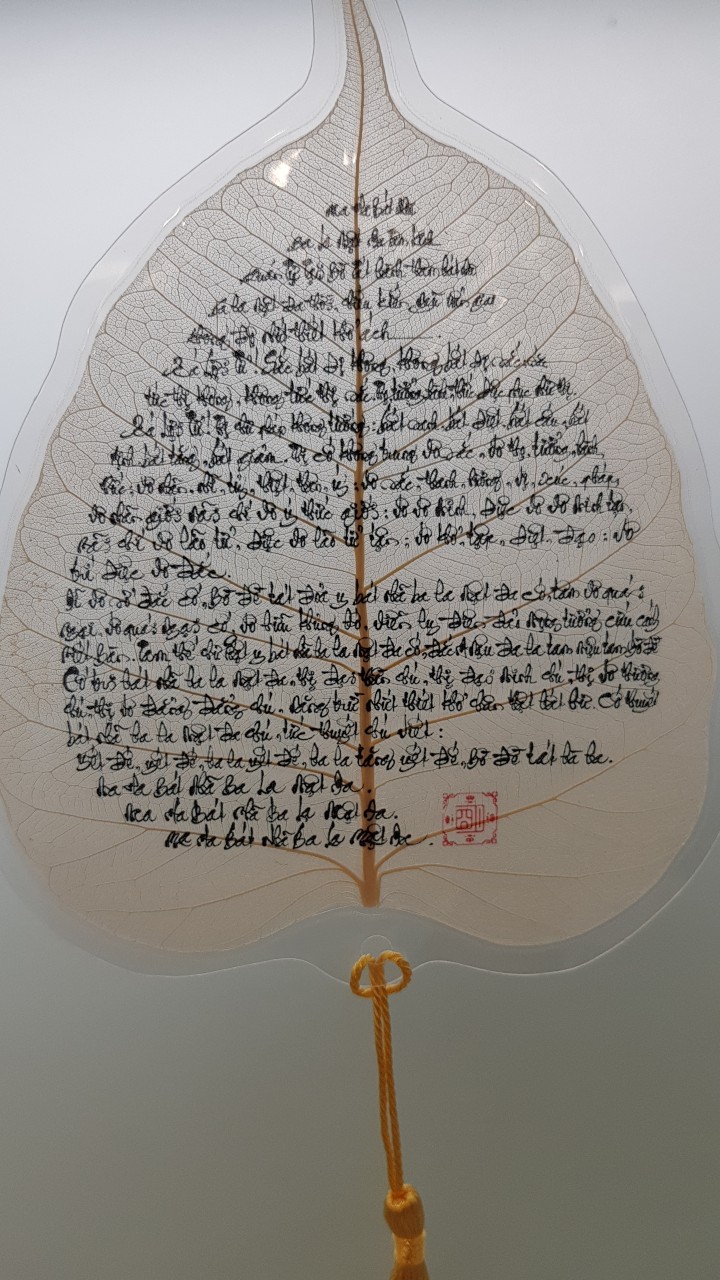 Ma Ha Bát Nhã
Ba La Mật Đa Tâm Kinh
Quán Tự Tại Bồ Tát hành thâm bát nhã
ba la mật đa thời, chiếu kiến ngũ uẩn giai
không, độ nhất thiết khổ ách.
Xá Lợi Tử! Sắc bất dị không, không bất dị sắc, sắc
tức thị không, không tức thị sắc, thọ, tưởng, hành, thức diệc phục như thị.
Xá Lợi Tử! Thị chư pháp không tướng: bất sanh, bất diệt, bất cấu, bất
tịnh, bất tăng, bất giảm, thị cố không trung vô sắc, vô thọ, tưởng, hành,
thức; vô nhãn, nhĩ, tỷ, thiệt, thân, ý; vô sắc, thanh, hương, vị, xúc, pháp;
vô nhãn giới nãi chí vô ý thức giới; vô vô minh, diệc vô vô minh tận,
nãi chí vô lão tử, diệc vô lão tử tận; vô khổ, tập, diệt, đạo; vô
trí diệc vô đắc.
Dĩ vô sở đắc cố, Bồ Đề tát đỏa y bát nhã ba la mật đa cố, tâm vô quái
ngại, vô quái ngại cố, vô hữu khủng bố, viễn ly điên đảo mộng tưởng cứu cánh
Niết Bàn. Tam thế chư Phật y bát nhã ba la mật đa cố, đắc A nậu đa la tam miệu tam bồ đề
Cố tri bát nhã ba la mật đa, thị đại thần chú, thị đại minh chú, thị vô thượng
chú, thị vô đẳng đẳng chú, năng trừ nhất thiết khổ chân thật bất hư. Cố thuyết
bát nhã ba la mật đa chú, tức thuyết chú viết:
Yết đế, yết đế, ba la yết đế, ba la tăng yết đế, bồ đề tát bà ha.
Ma Ha Bát Nhã Ba La Mật Đa.
Ma Ha Bát Nhã Ba La Mật Đa.
Ma Ha Bát Nhã Ba La Mật Đa.